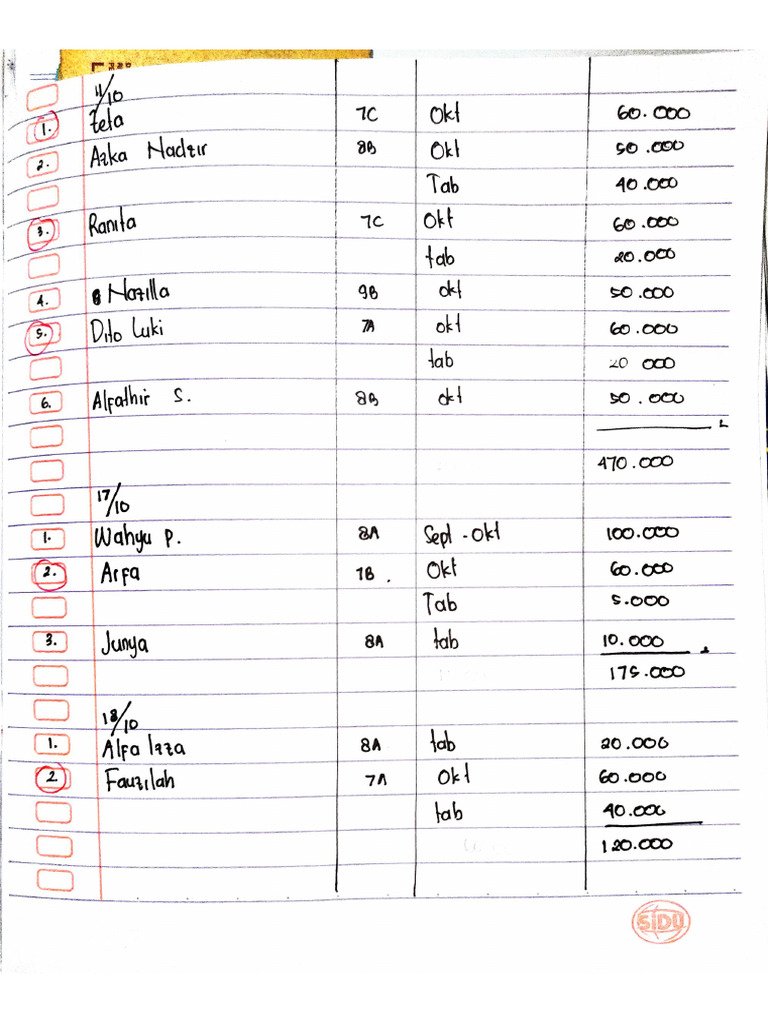 11/10
1. Zeta 7C Okt 60.000
2. Azka Nadzir 8B Okt 50.000
Tab 40.000
3. Ranita 7C Okt 60.000
tab 20.000
4. Nazilla 9B okt 50.000
5. Dito Luki 7A okt 60.000
tab 20 000
6. Alfathir S. 8B okt 50.000
470.000
17/10
1. Wahyu P. 8A Sept - Okt 100.000
2. Arfa 7B. Okt 60.000
Tab 5.000
3. Junya 8A tab 10.000
175.000
18/10
1. Alfa Izza 8A tab 20.000
2 Fauzilah 7A Okt 60.000
tab 40.000
120.000
SiDU